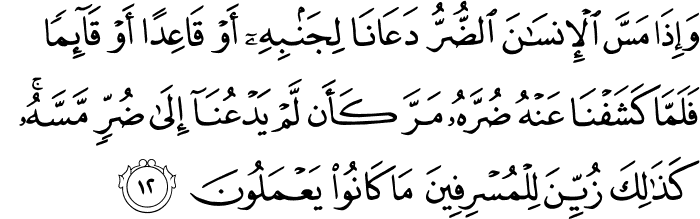 وَإِذَا مَسَّ ٱلْإِنسَـٰنَ ٱلضُّرُّ دَعَانَا لِجَنۢبِهِۦٓ أَوْ قَاعِدًا أَوْ قَآئِمًا
فَلَمَّا كَشَفْنَا عَنْهُ ضُرَّهُۥ مَرَّ كَأَن لَّمْ يَدْعُنَآ إِلَىٰ ضُرٍّ مَّسَّهُۥ ۚ
كَذَٰلِكَ زُيِّنَ لِلْمُسْرِفِينَ مَا كَانُوا۟ يَعْمَلُونَ ١٢